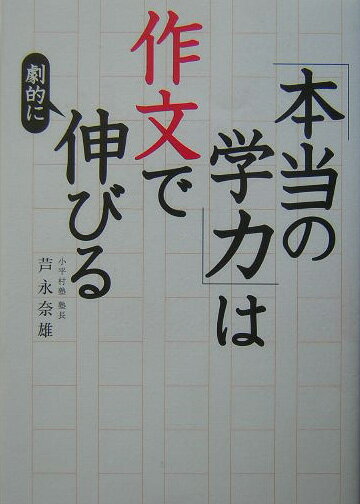 「本当の
学力」は
作文で
劇的に
伸びる
小平村塾 塾長
芦永奈雄